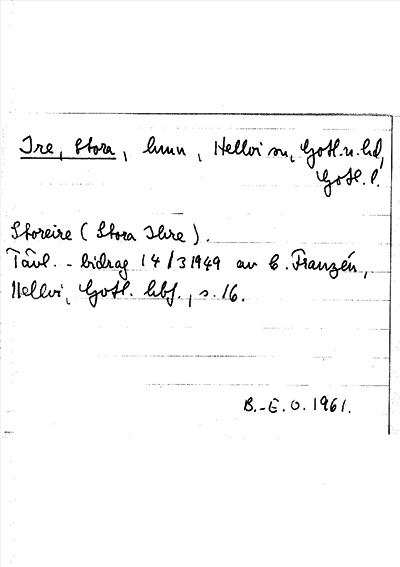 Ire, Stora, hmn, Hellvi sn, Gotl. n. hd,
Gotl. l.
Storeire (Stora Ihre).
Tävl.-bidrag 14/3 1949 av C. Franzén,
Hellvi, Gotl. hbf., s. 16.
B.-E. O. 1961.